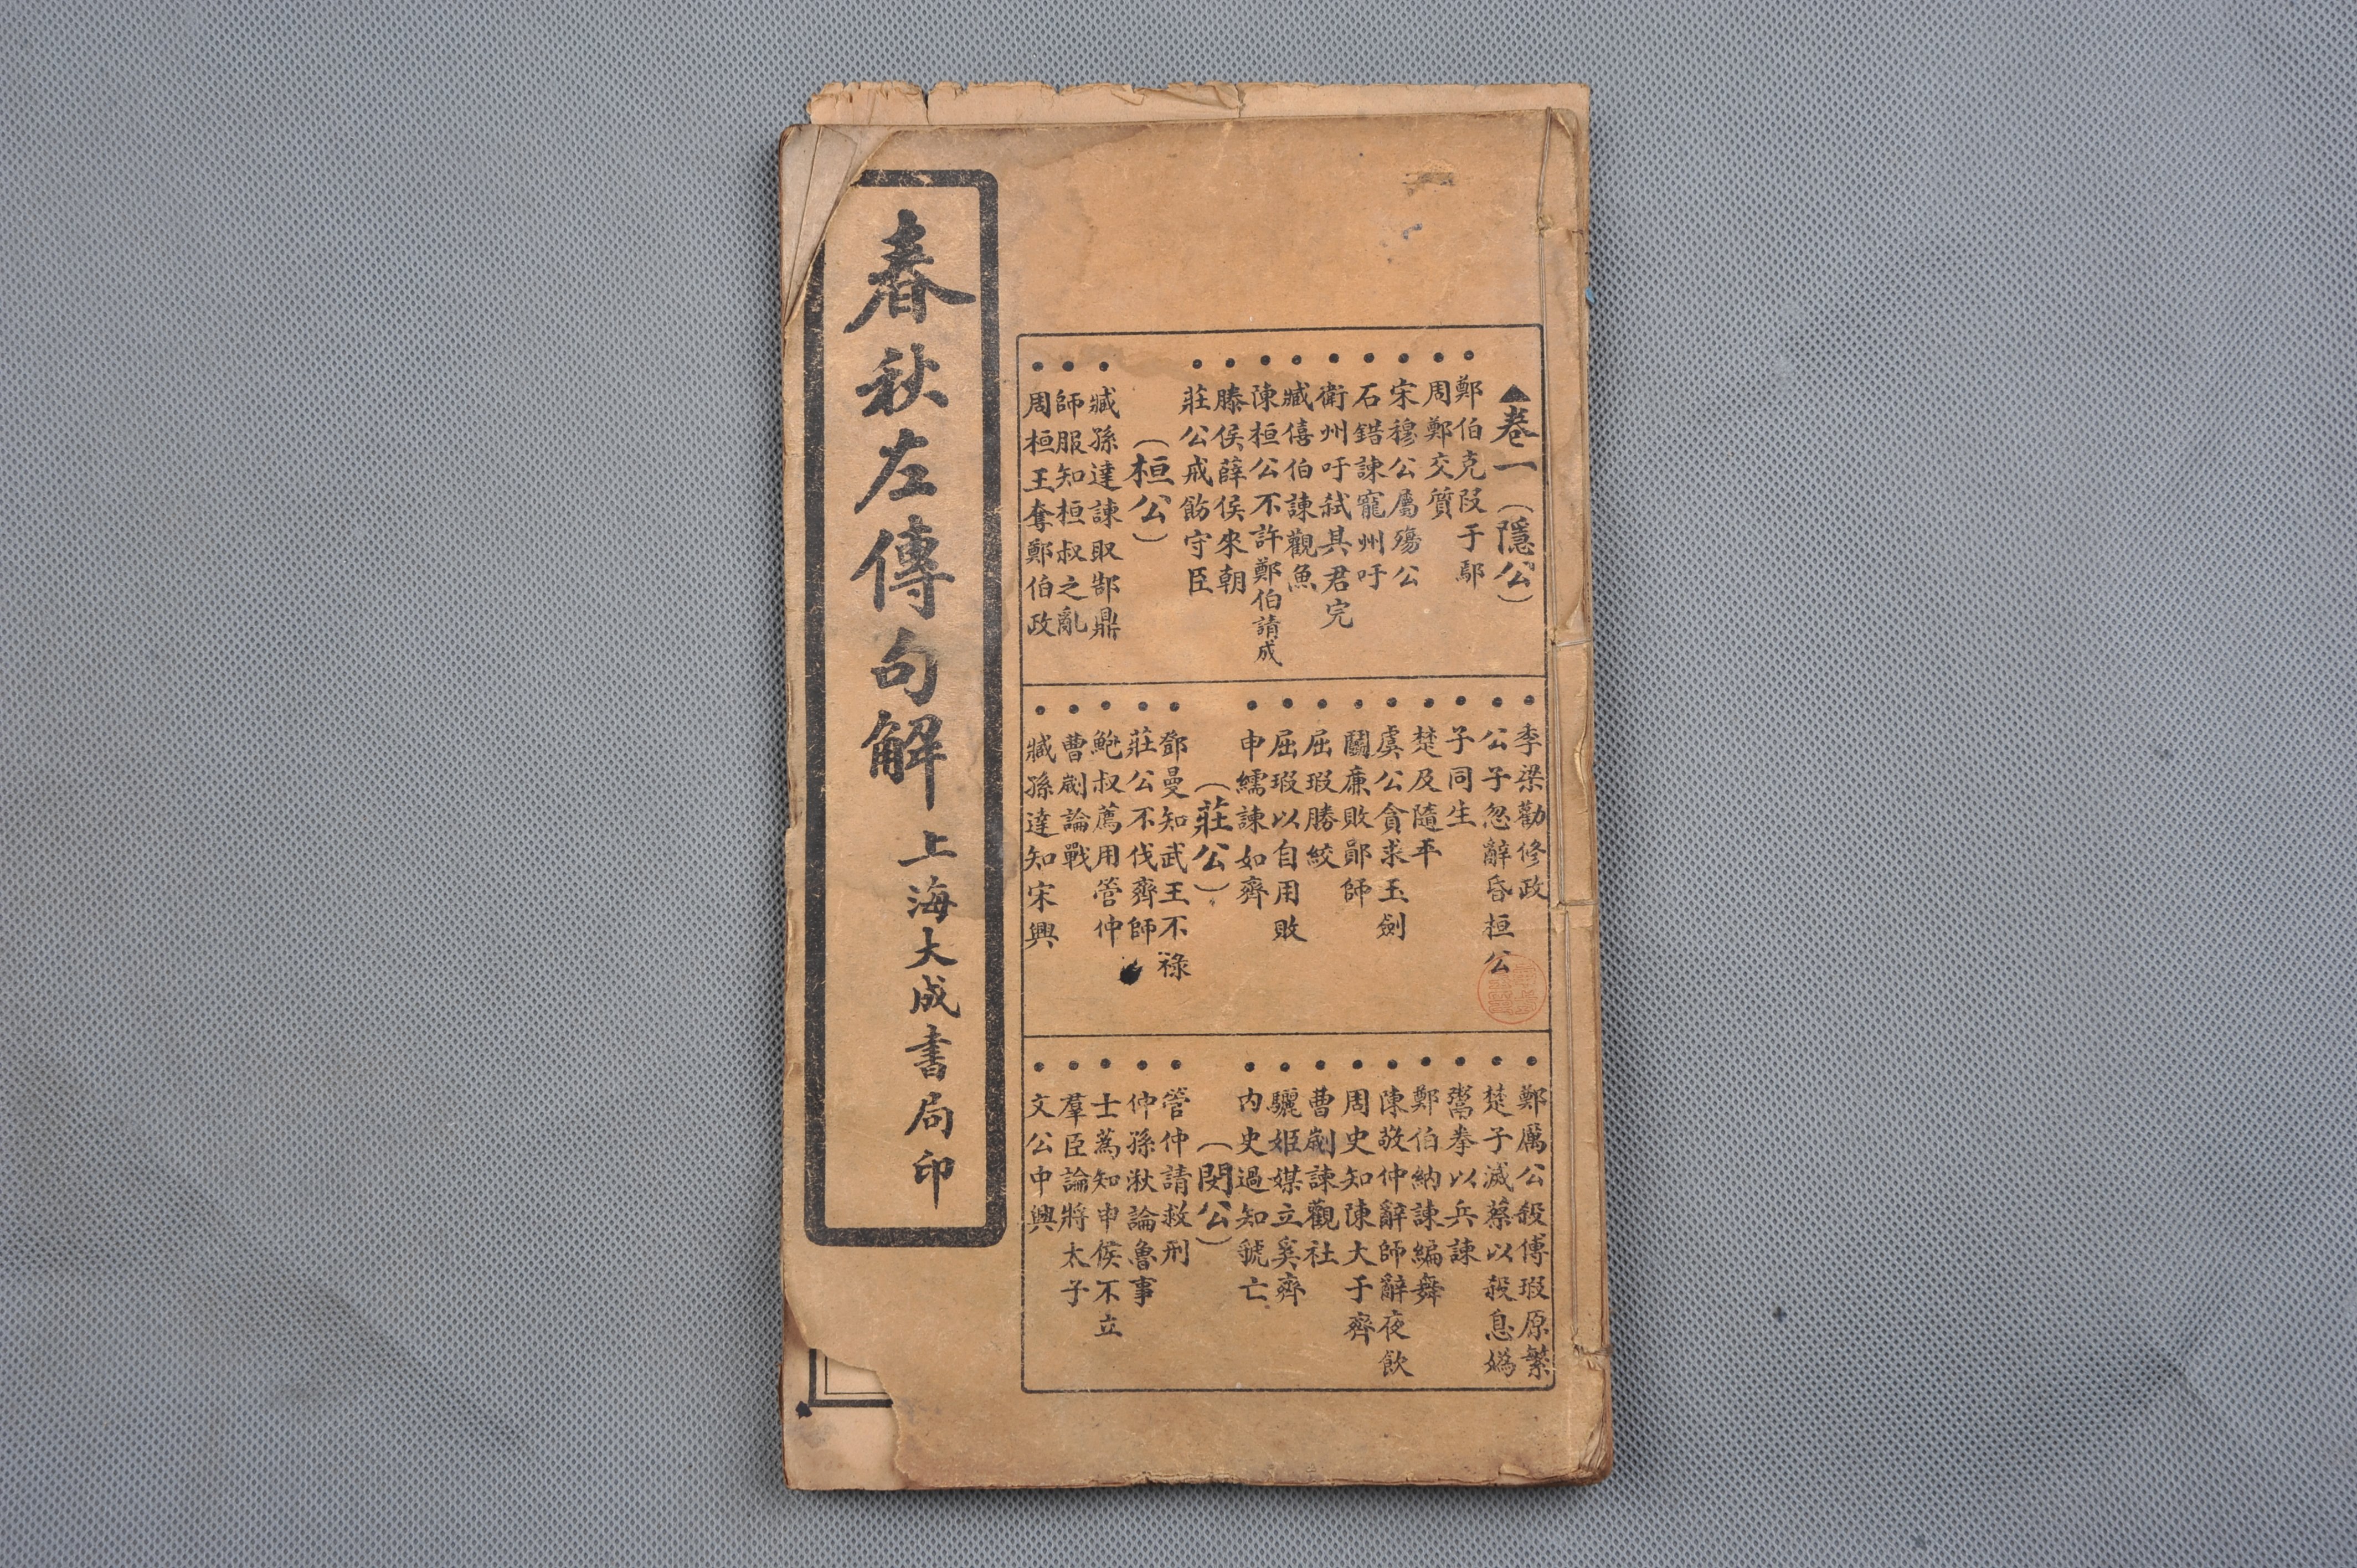 ▲卷一（隱公）
鄭伯克段于鄢
周鄭交質
宋穆公屬殤公
石錯諫寵州吁
衛州吁弒其君完
臧僖伯諫觀魚
陳桓公不許鄭伯請成
滕侯薛侯來朝
莊公戒飭守臣
（桓公）
臧孫達諫取郜鼎
師服知桓叔之亂
周桓王奪鄭伯政
季梁勸修政
公子忽辭昏桓公
子同生
楚及隨平
虞公貪求玉劍
鬭廉敗鄖師
屈瑕勝絞
屈瑕以自用敗
申繻諫如齊
（莊公）
鄧曼知武王不祿
莊公不伐齊師
鮑叔薦用管仲
曹劌論戰
臧孫達知宋興
鄭厲公殺傅瑕原繁
楚子滅蔡以殺息媯
鬻拳以兵諫
鄭伯納諫編舞
陳敬仲辭師辭夜飲
周史知陳大于齊
曹劌諫觀社
驪姬媒立奚齊
內史過知虢亡
（閔公）
管仲請救刑
仲孫湫論魯事
士蒍知申侯不立
羣臣論將太子
文公中興
春秋左傳句解
上海大成書局印